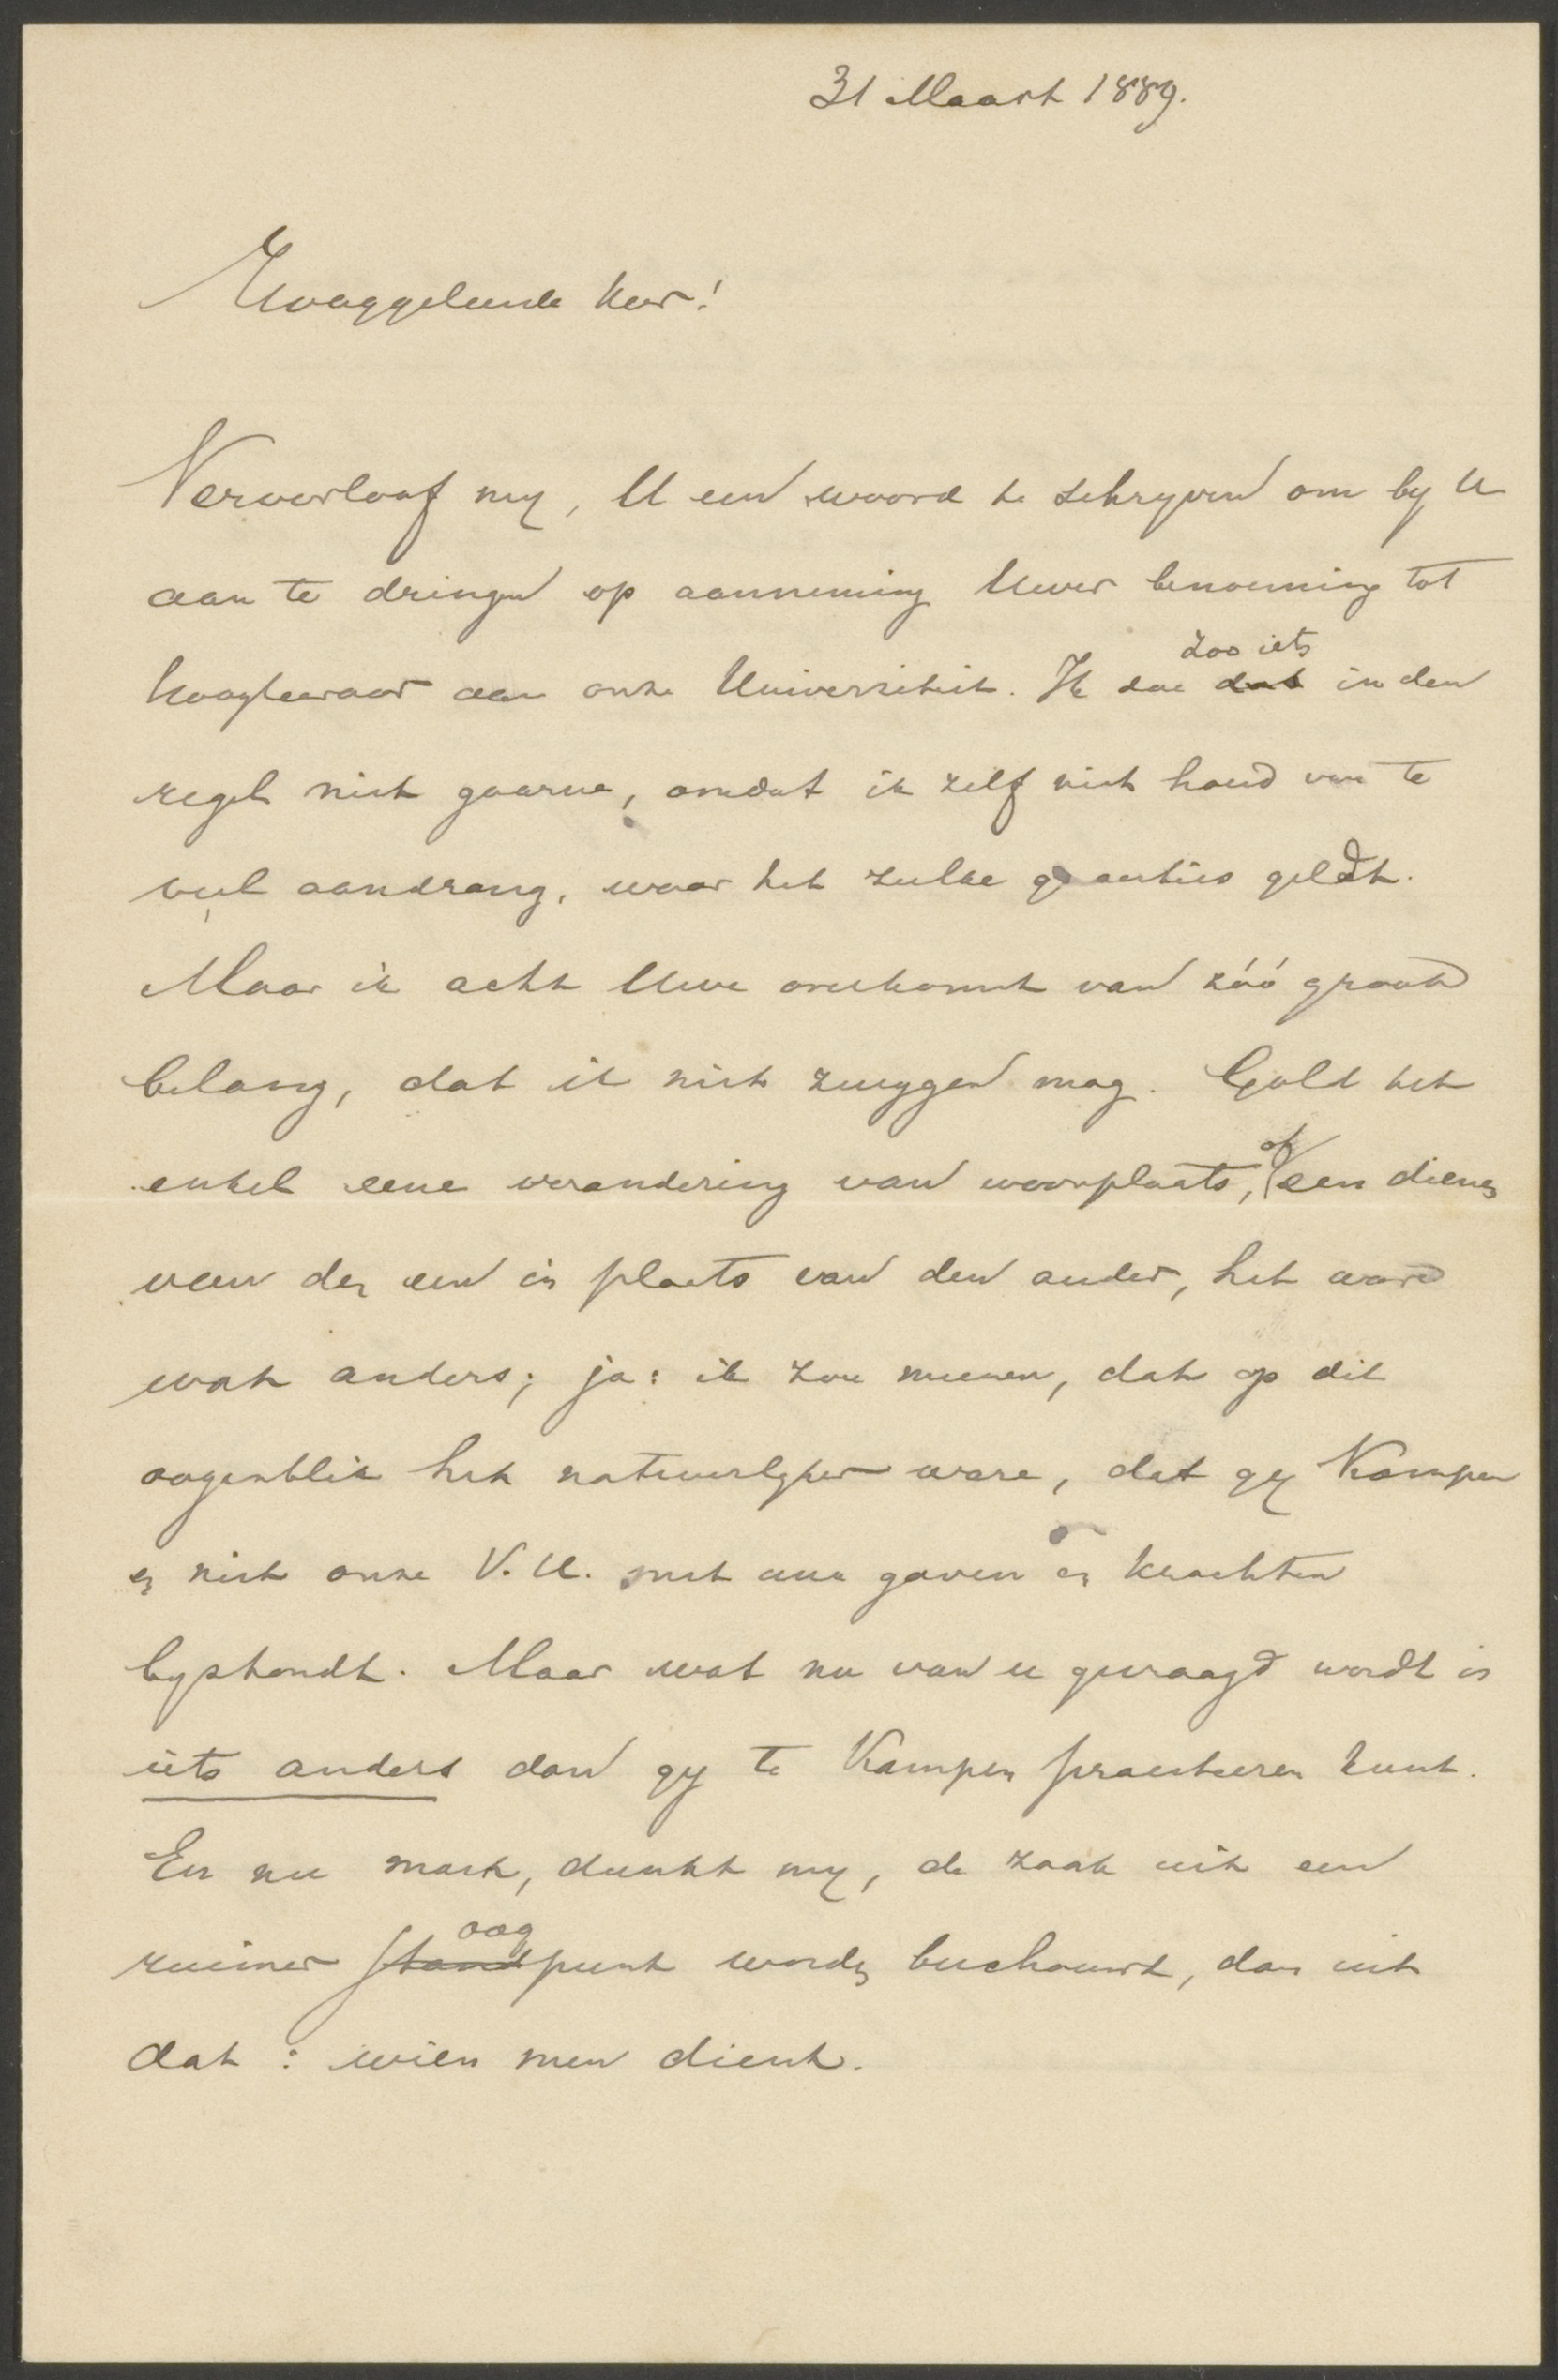 31 Maart 1889.
Hooggeleerde Heer!
Veroorloof my, U een woord te schryven om by U
aan te dringen op aanneming Uwer benoeming tot
zoo iets
hoogleeraar aan onze Universiteit. Ik doe dat in den
regel niet gaarne, omdat ik zelf niet houd van te
veel aandrang, waar het zulke quaesties geldt.
Maar ik acht Uwe overkomst van zóó groot
belang, dat ik niet zwygen mag. Gold het
of
enkel eene verandering van woonplaats, een dienen
van den een in plaats van den ander, het ware
wat anders; ja: ik zou meenen, dat op dit
oogenblik het natuurlyker ware, dat gy Kampen
en niet onze V.U. met uwe gaven en krachten
bystondt. Maar wat nu van u gevraagd wordt is
iets anders dan gy te Kampen praesteeren kunt.
En nu moet, dunkt my, de zaak uit een
oog
ruimer standpunt worden beschouwd, dan uit
dat: wien men dient.